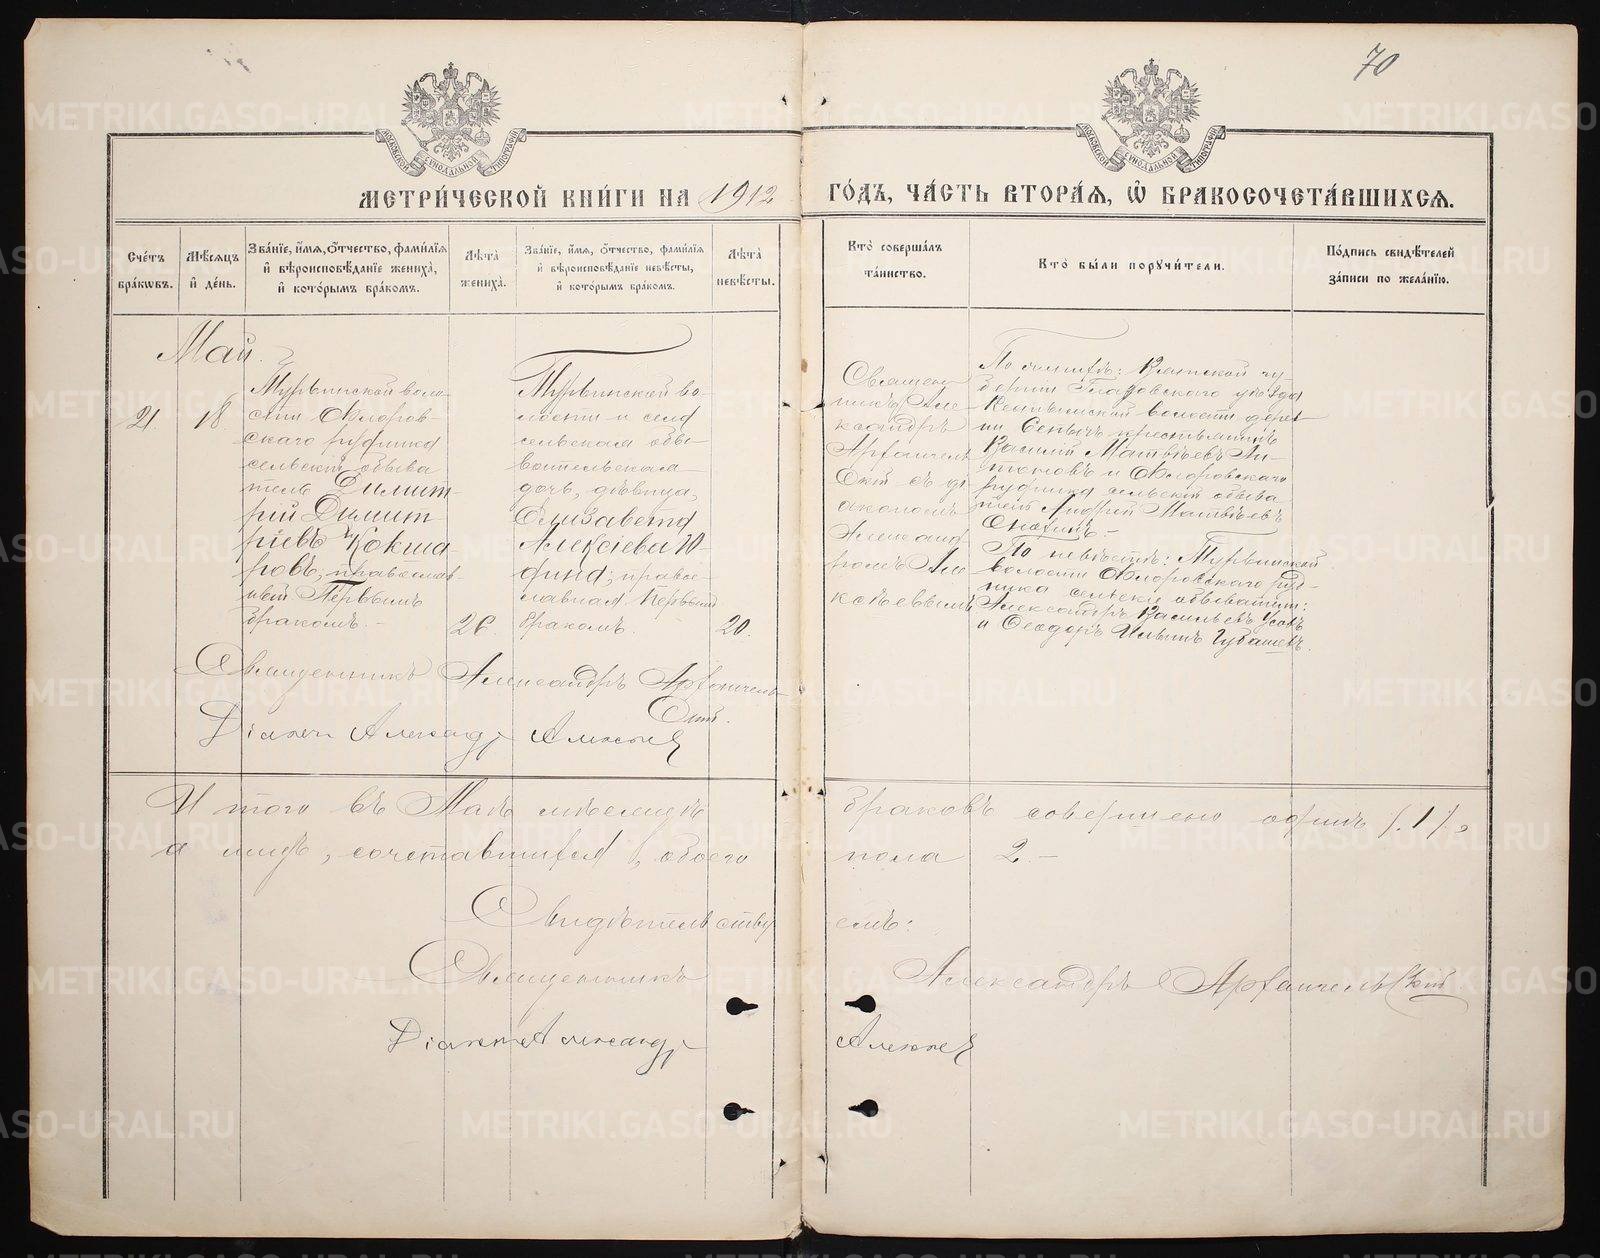 70
МОСКОВСКОЙ СУНОДАЛЬНОЙ ТИПОГРАФІИ
МОСКОВСКОЙ СУНОДАЛЬНОЙ ТИПОГРАФІИ
МЕТРИ́ЧЕСКОЙ КНИ́ГИ НА 1912
ГО́ДЪ, ЧА́СТЬ ВТОРА́Я, Ѡ҆ БРАКОСОЧЕТА́ВШИХСЯ.
Сче́тъ
бра́кѡвъ.
Мѣ́сяцъ
и҆ де́нь.
Зва́нїе, и҆́мя, ѻ҆́тчество, фами́лїя
и҆ вѣроисповѣ́данїе жениха̀,
и҆ кото́рымъ бра́комъ.
Лѣ́та̀
жениха̀.
Зва́нїе, и҆́мя, ѻ҆́тчество, фами́лїя
и҆ вѣроисповѣ́данїе невѣ́сты,
и҆ кото́рымъ бра́комъ.
Лѣ́та̀
невѣ́сты.
Кто̀ соверша́лъ
та́инство.
Кто̀ бы́ли порꙋчи́тели.
По́дпись свидѣ́телей
за́писи по жела́нїю.
Май.
21.
18.
Мурзинской воло-
сти Ѳедоров-
скаго рудника
сельскій обыва
тель Димит-
рій Димит
ріевъ Кокша-
ровъ; православ-
ный Первымъ
бракомъ.-
26.
Мурзинской во-
лости и села
сельская обы-
вательская
дочь, дѣвица,
Елизавета
Алексіева Ю-
дина; правос-
лавная Первымъ
бракомъ.
20.
Священ
никъ Але-
ксандръ
Архангель
Скій съ ді
акономъ
Александ
ромъ Але
ксѣевымъ
По женихѣ: Вятской гу
берніи Глазовскаго уѣзда
волости дерев-
ни крестьянинъ
Василій Матвѣевъ Ан-
тоновъ и Ѳедоровскаго
рудника сельскій обыва
тель Андрей Матвѣевъ
По невѣстѣ: Мурзинской
волости Ѳедоровскаго руд-
ника сельскіе обыватели:
Александръ Васильевъ Усовъ
и Ѳеодоръ Ильинъ
Священникъ Александръ Архангель-
Скій.
Діаконъ Александръ Алексѣев
Итого въ Маѣ мѣсяцѣ
браковъ совершено одинъ (1),
а лицъ, сочетавшихся, обоего
пола 2.-
Свидѣтельству
емъ:
Священникъ
Александръ Архангельскій
Діаконъ Александръ
Алексѣев
METRIKI.GASO-URAL.RU